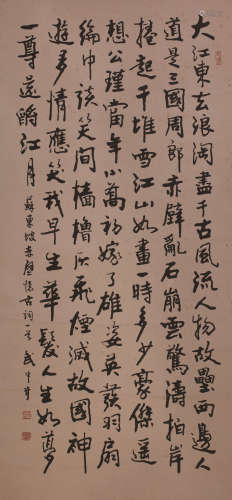 大江東去浪淘盡千古風流人物故壘西邊人
道是三國周郎赤壁亂石崩雲驚濤拍岸
捲起千堆雪江山如畫一時多少豪傑遙
想公瑾當年小喬初嫁了雄姿英發羽扇
綸巾談笑間檣櫓灰飛煙滅故國神
遊多情應笑我早生華髮人生如夢
一尊還酹江月 蘇東坡赤壁懷古詞一首 武中奇